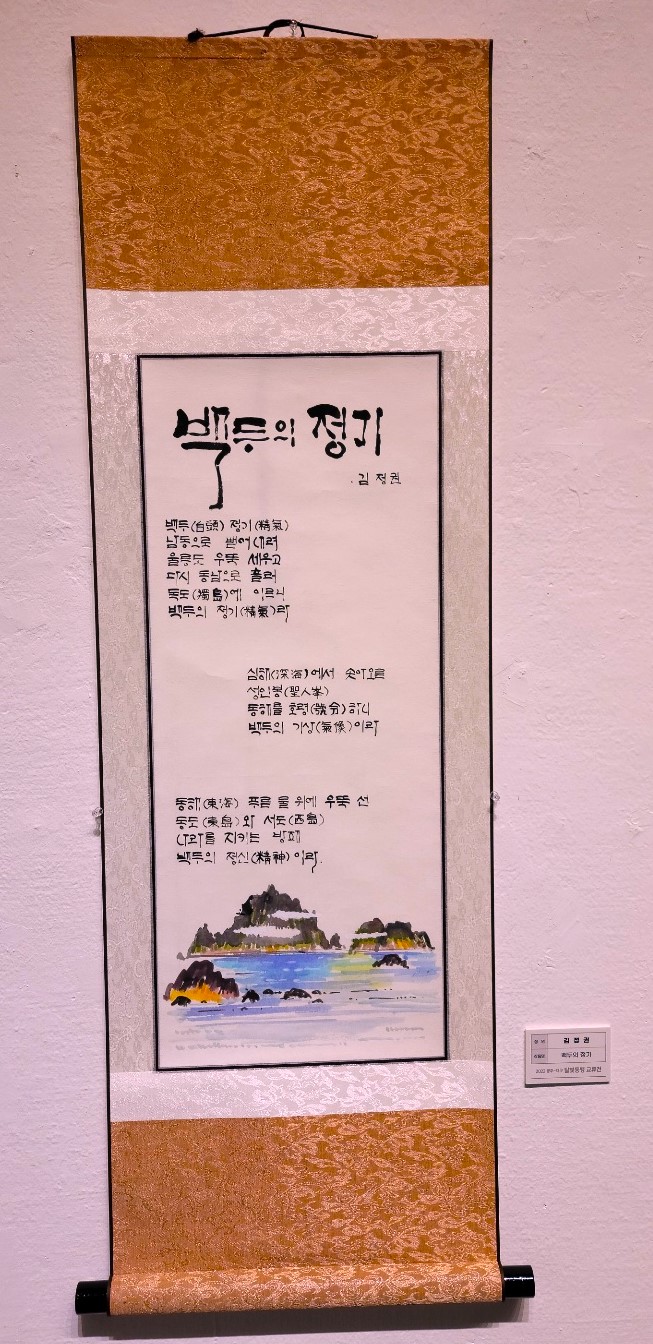 백두의 정기
김 정권
백두(白頭) 정기(精氣)
남동으로 뻗어내려
울릉도 우뚝 세우고
다시 동남으로 흘러
독도(獨島)에 이르니
백두의 정기(精氣)라
심해(深海)에서 솟아오른
성인봉(聖人峯)
동해를 호령(號令)하니
백두의 기상(氣像)이라
동해(東海) 푸른 물 위에 우뚝 선
동도(東島)와 서도(西島)
나라를 지키는 방패
백두의 정신(精神)이라.
김 정 권
작품명 백두의 정기
2022 달빛동맹 교류전